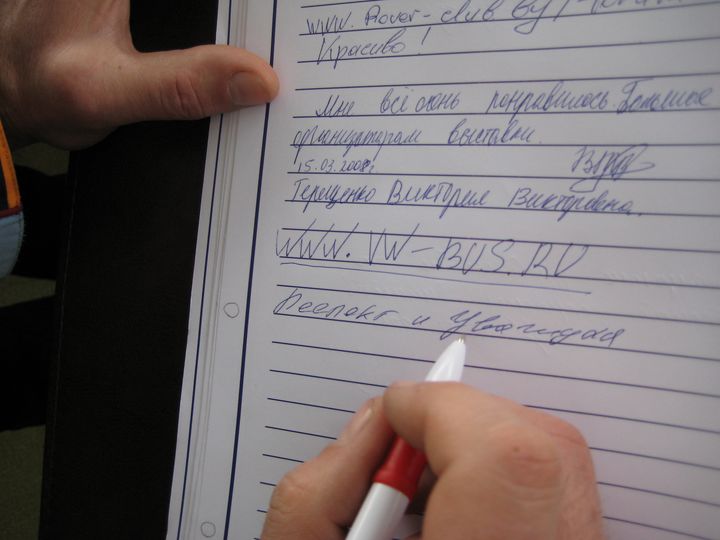 www. Rover-club by
Красиво!
Мне всё очень понравилось. Большое
организаторам выставки.
15.03.2008г
Терещенко Виктория Викторовна.
WWW. VW-BUS.RU
Респект и Уважуха